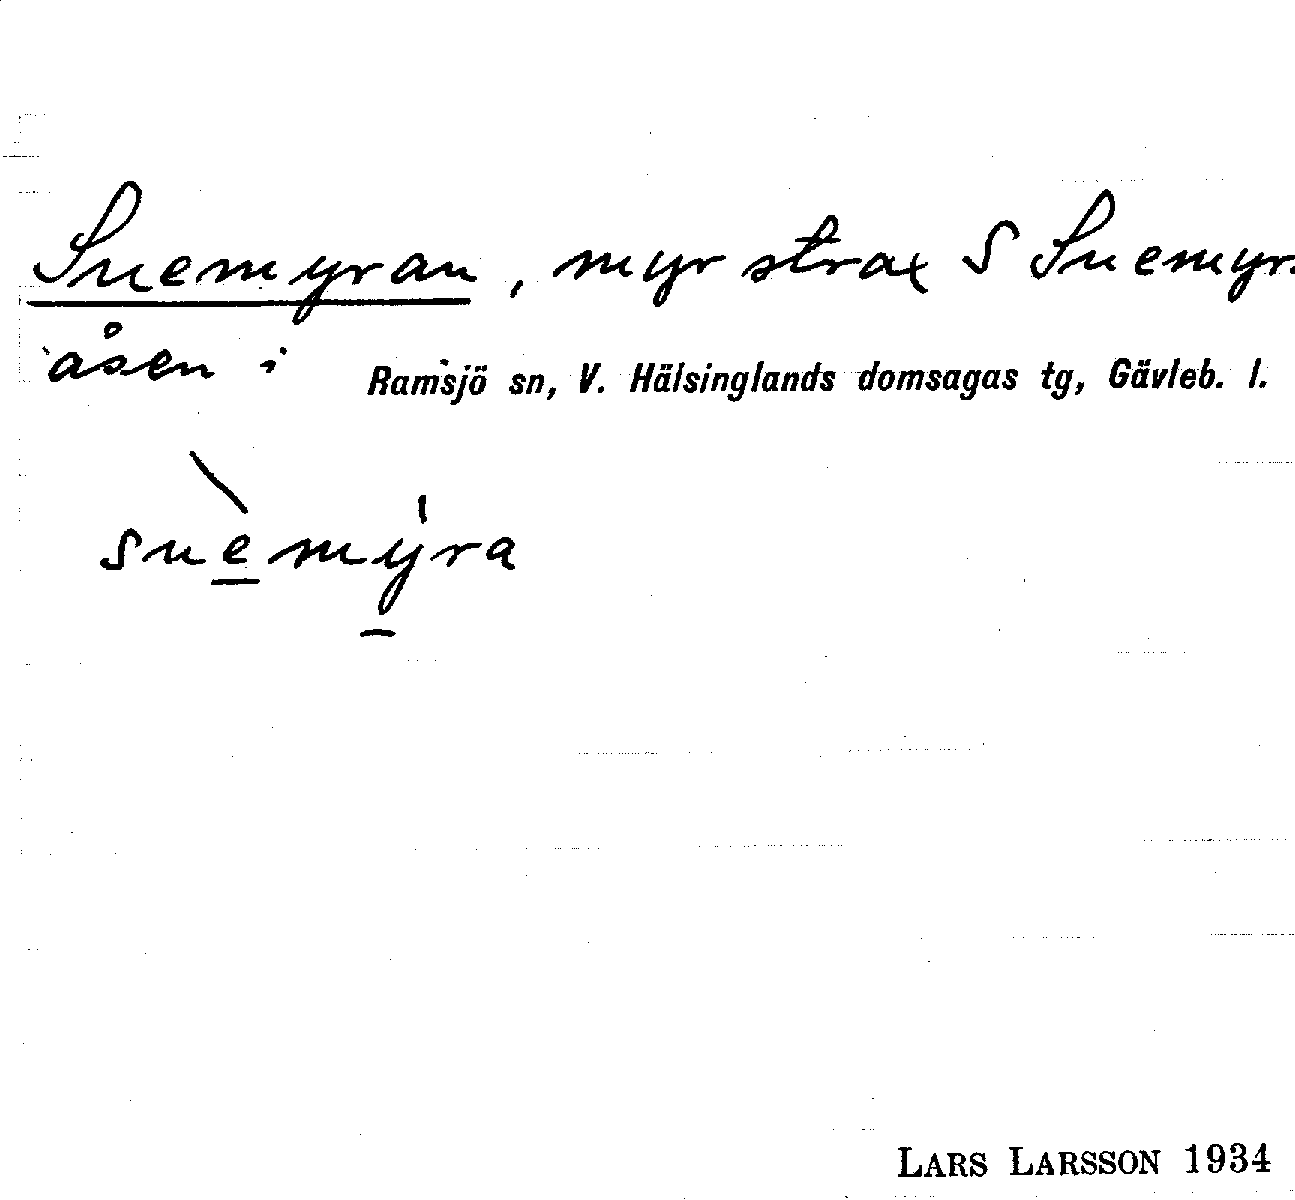 Snemyran, myr strax S Snemyr-
åsen i Ramsjö sn, V. Hälsinglands domsagas tg, Gävleb. l.
snemyra
LARS LARSSON 1934